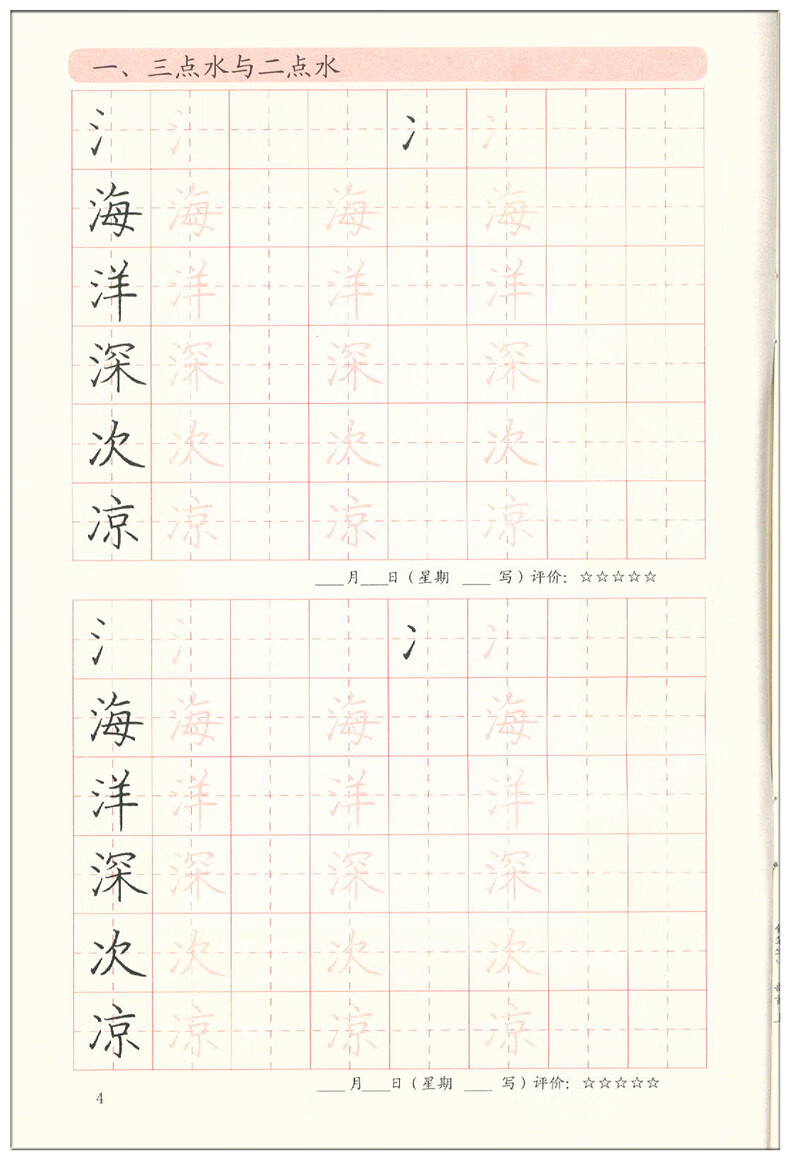 一、三点水与二点水
氵 氵 冫 冫
海 海 海 海
洋 洋 洋 洋
深 深 深 深
次 次 次 次
凉 凉 凉 凉
___月___日（星期 ___ 写）评价：☆☆☆☆☆
氵 氵 冫 冫
海 海 海 海
洋 洋 洋 洋
深 深 深 深
次 次 次 次
凉 凉 凉 凉
___月___日（星期 ___ 写）评价：☆☆☆☆☆
4